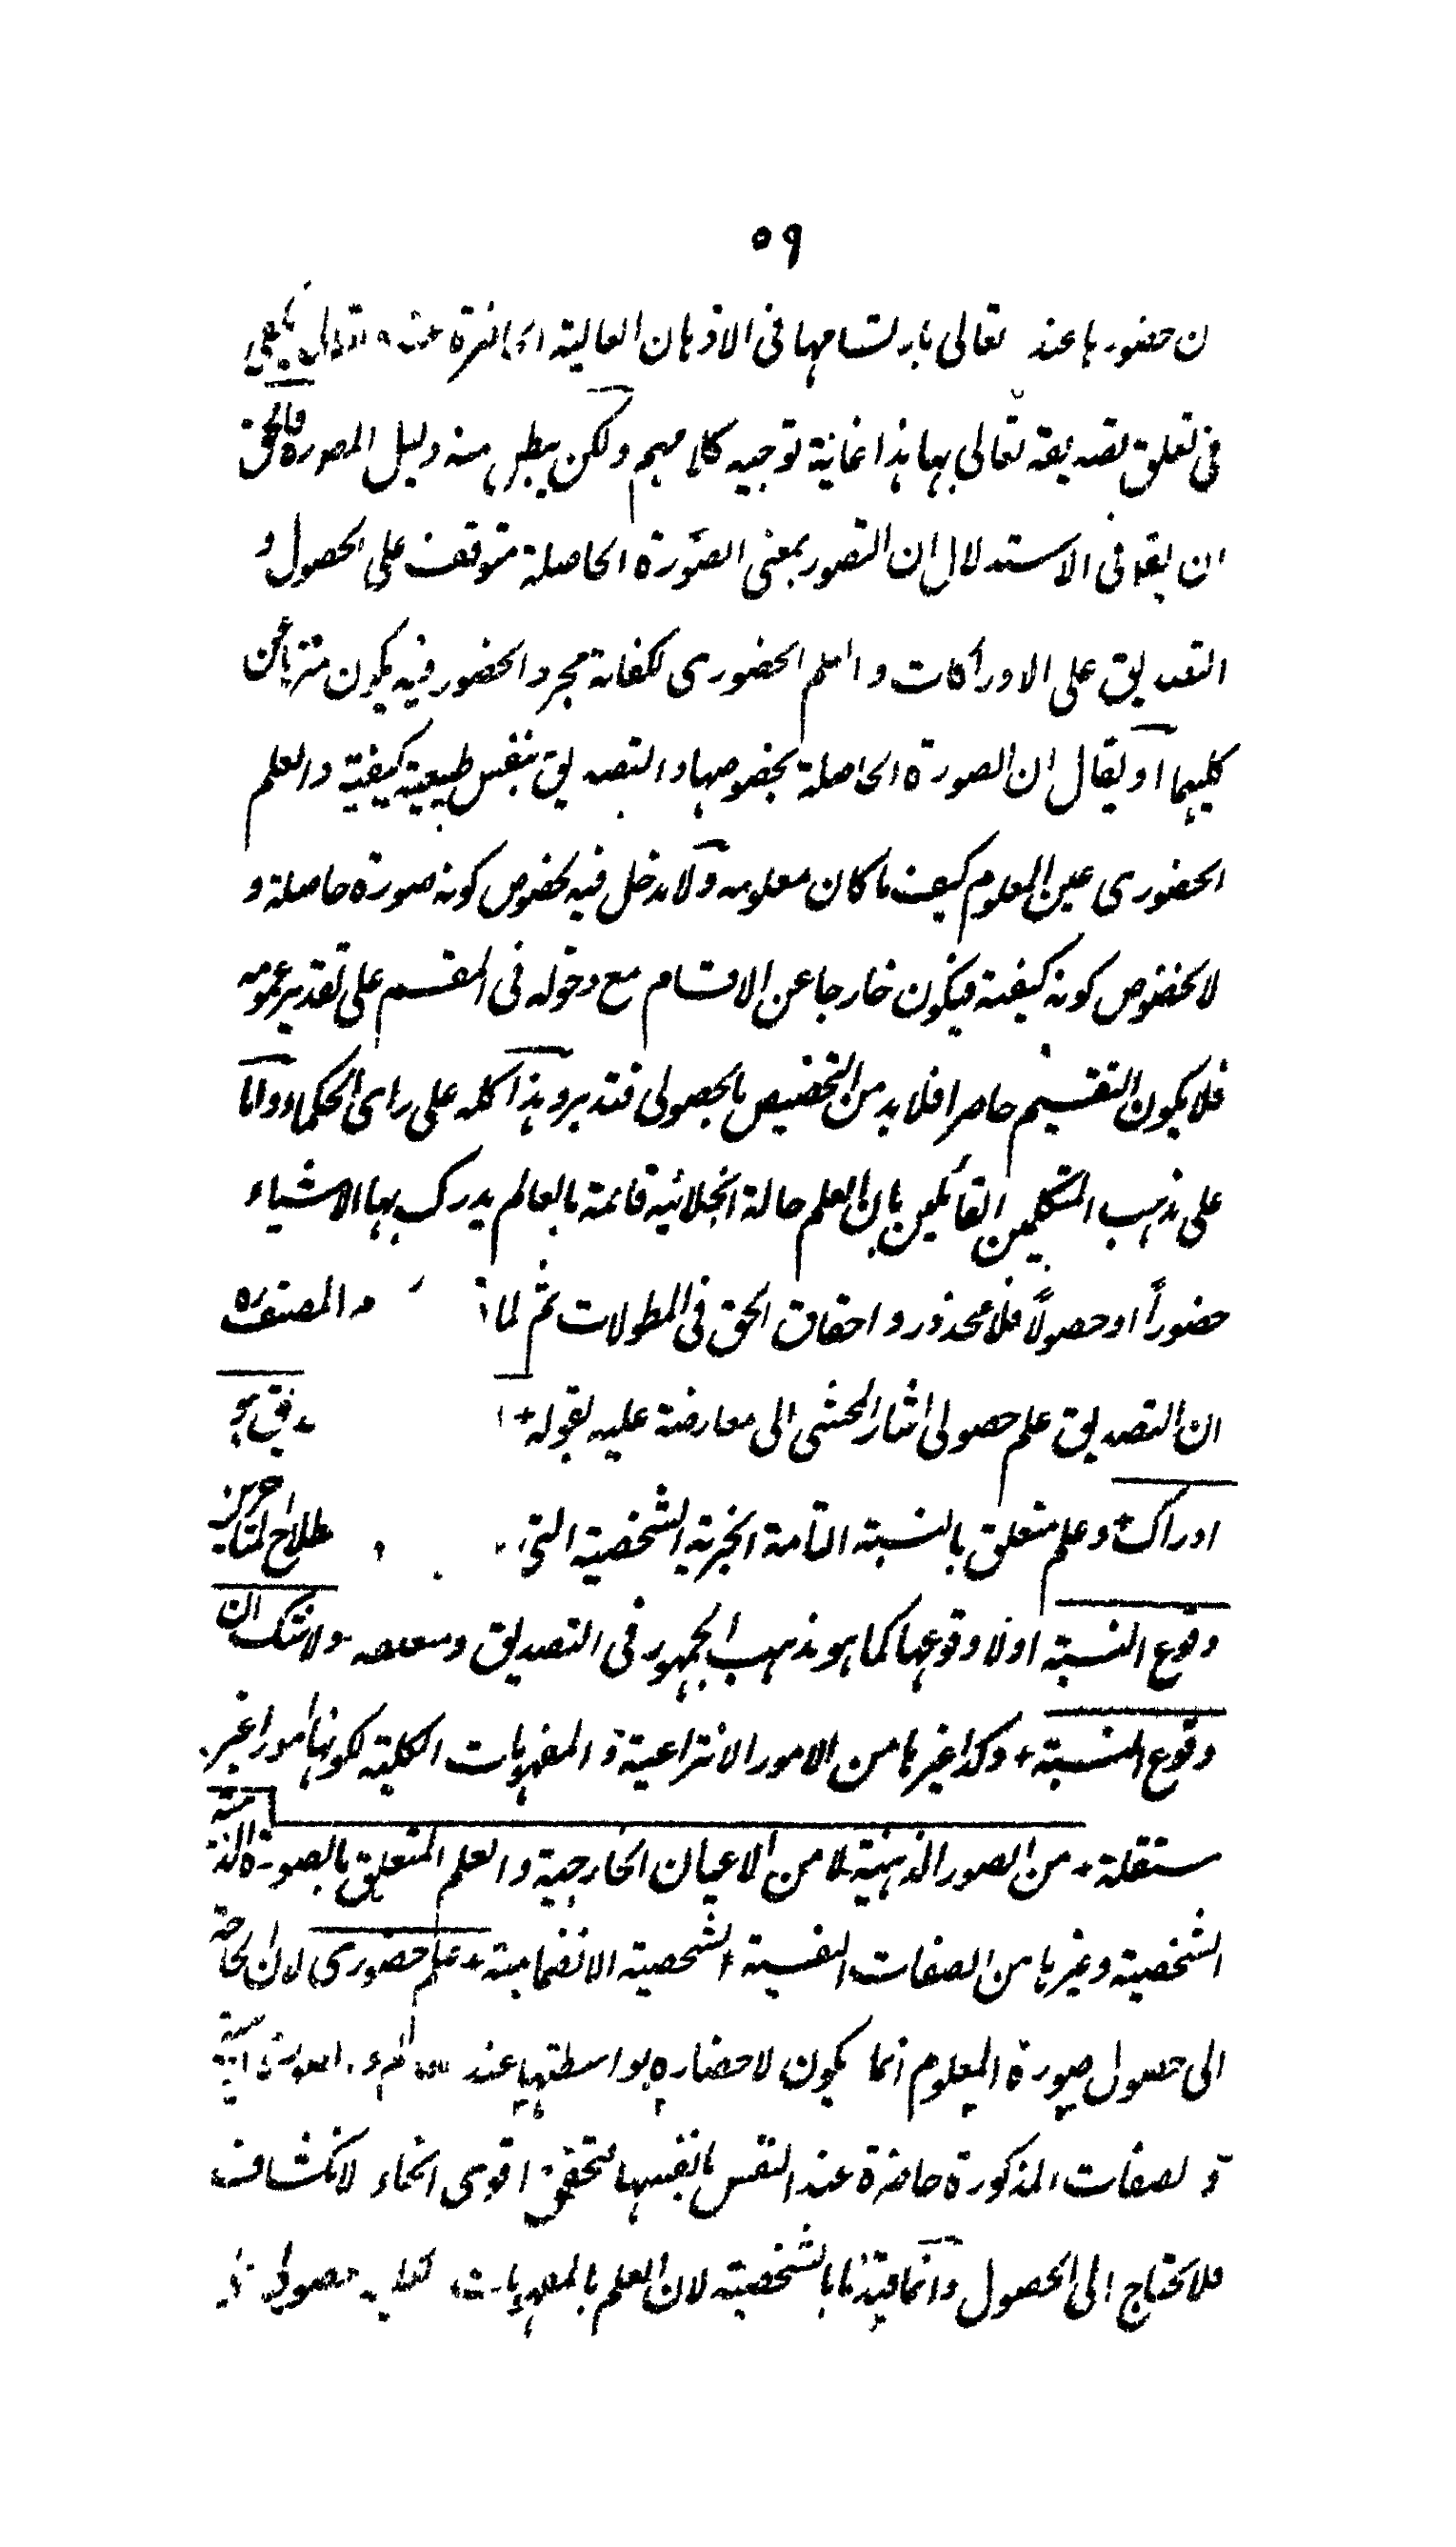 ٥٩
ن حضورها عند تعالى بارتسامها فى الاذهان العالية الحاضرة عنده تعالى يكفى
فى تعلق تصديقه تعالى بها هذا غاية توجيه كلامهم ولكن يبطل منه دليل المصوره فالحق
ان يقال فى الاستدلال ان التصور بمعنى الصورة الحاصلة متوقف على الحصول و
التصديق على الادراكات والعلم الحضورى لكفاية مجرد الحضور فيه يكون متريا عن
كليهما او يقال ان الصورة الحاصلة بخصوصها والتصديق بنفس طبيعية كيفية والعلم
الحضورى عين المعلوم كيف ما كان معلومه ولا يدخل فيه لخصوص كونه صورة حاصلة و
لا لخصوص كونه كيفية فيكون خارجا عن الاقسام مع دخوله فى المقسم على تقدير عمومه
فلا يكون التقسيم حاصرا فلا بد من التخصيص بالحصولى فتدبر وهذا كله على راى الحكماء واما
على مذهب المتكلمين القائلين بان العلم حالة انجلائية قائمة بالعالم يدرك بها الاشياء
حضوراً او حصولاً فلا محذور واحقاق الحق فى المطولات ثم لما المصنف ره
ان التصديق علم حصولى اشار المحشى الى معارضة عليه بقوله
ادراك وعلم متعلق بالنسبة التامة الخبرية الشخصية التى
وقوع النسبة اولا وقوعها كما هو مذهب الجمهور فى التصديق ومتعلقه ولا شك ان
وقوع النسبة + وكذا غيرها من الامور الانتزاعية والمفهومات الكلية لكونها امورا غير
مستقلة + من الصور الذهنية لا من الاعيان الخارجية والعلم المتعلق بالصورة الذهنية
الشخصية وغيرها من الصفات النفسية + الشخصية الانضمامية + علم حضورى لان الحاجة
الى حصول صورة المعلوم انما يكون لاحضاره بواسطتها عند
والصفات المذكورة حاضرة عند النفس بانفسها لتحقق اقوى انحاء الانكشاف
فلا تحتاج الى الحصول وانما قيدنا بالشخصية لان العلم بالمفهومات حصولى